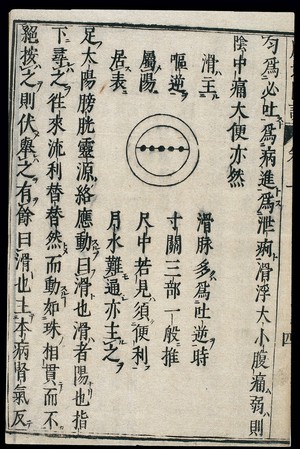 匀爲必吐爲病進爲泄痢滑浮大小腹痛弱則
陰中痛大便亦然
滑主
嘔逆
屬陽
居表
滑脉多爲吐逆時
寸關三部一般推
尺中若見須便利
月水難通亦主之
足太陽膀胱靈源絡應動曰滑也滑者陽也指
下尋之往來流利替替然而動如珠相貫而不
絕按之則伏舉之有餘曰滑也主本病腎氣反
四